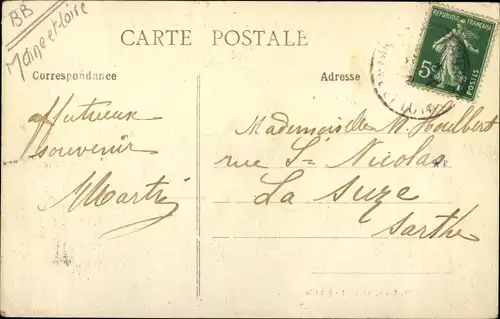 BB
Maine et Loire
CARTE POSTALE
Correspondance
Adresse
REPUBLIQUE FRANÇAISE
5c
POSTES
affectueux
souvenir
Mademoiselle M Houlbert
rue St Nicolas
La Suze
Sarthe